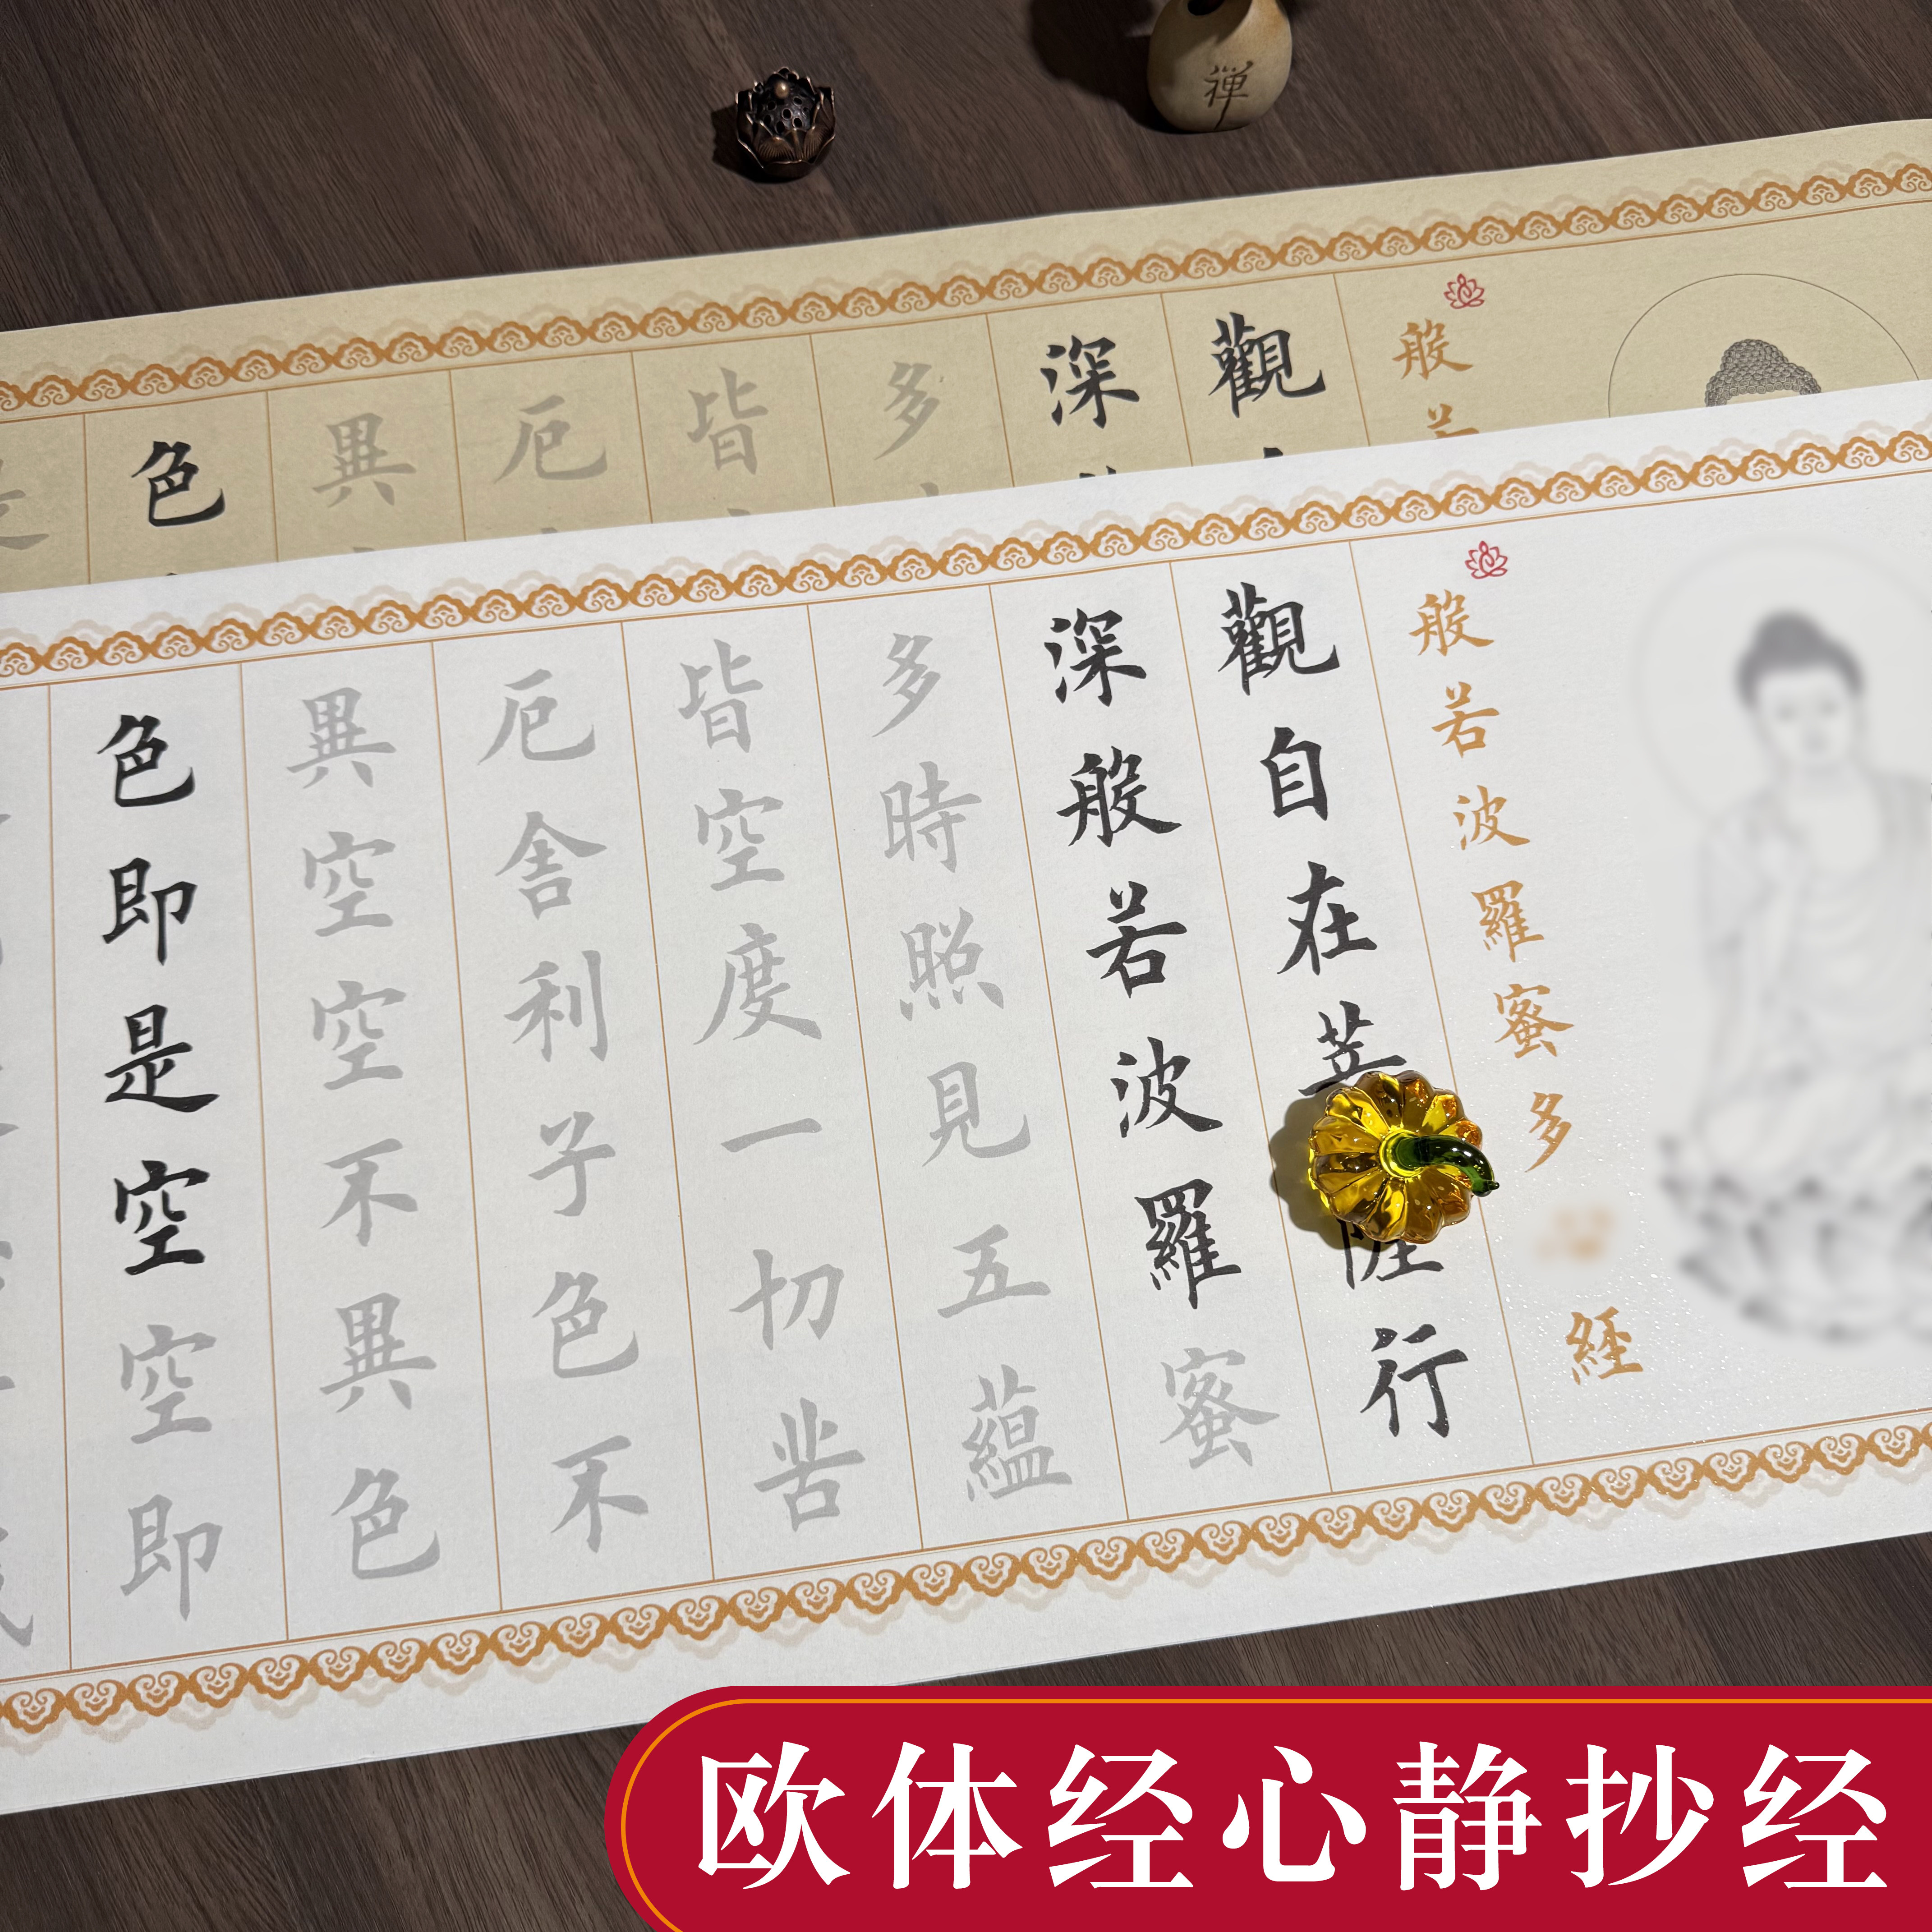 禅
般
觀
深
多
皆
厄
異
色
般若波羅蜜多經
觀自在菩行
深般若波羅蜜
多時照見五蘊
皆空度一切苦
厄舍利子色不
異空空不異色
色即是空空即
欧体经心静抄经